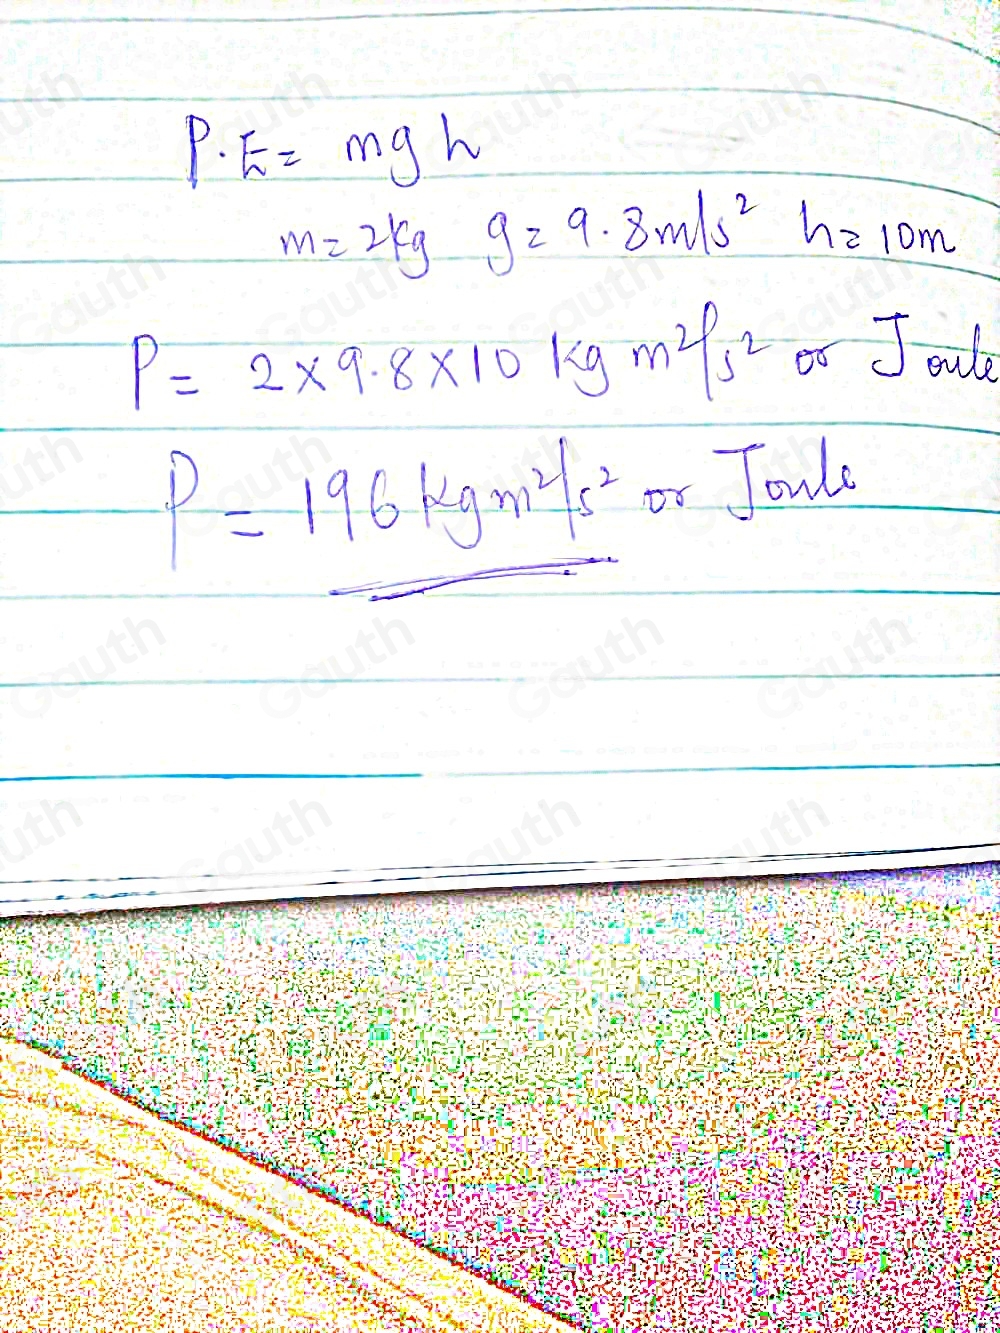 P.E = mgh
m = 2kg g = 9.8m/s² h = 10m
P = 2×9.8×10 kg m²/s² or Joule
P = 196 kg m²/s² or Joule